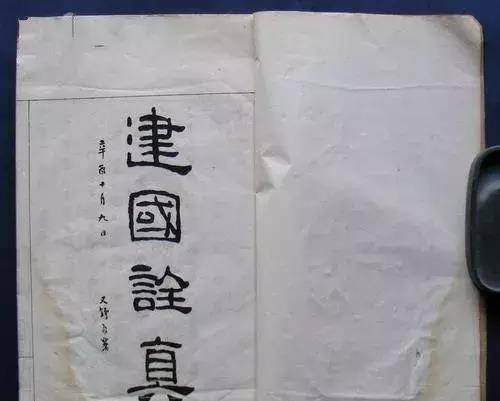 建國詮真
辛酉十月九日
又錚自署